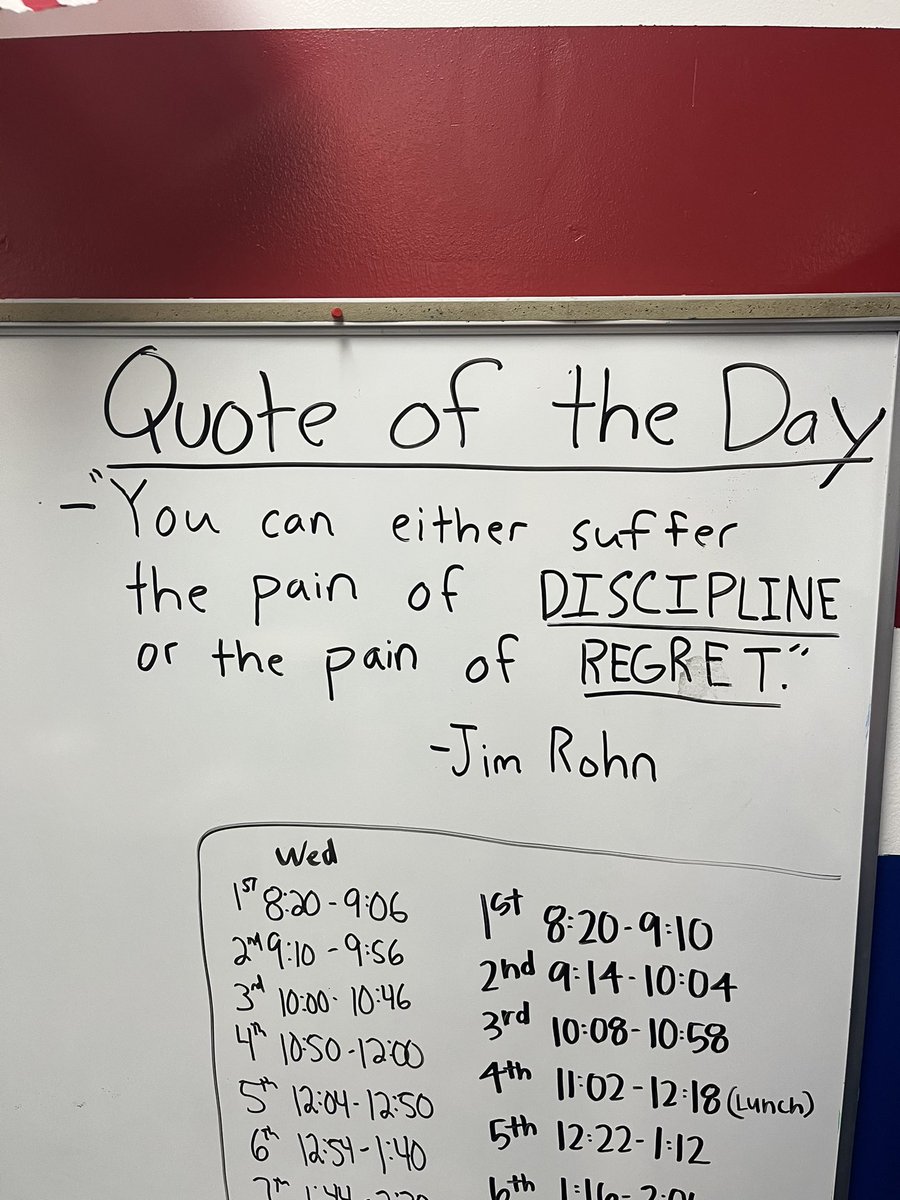 Quote of the Day
- "You can either suffer
the pain of DISCIPLINE
or the pain of REGRET."
-Jim Rohn
Wed
1ST 8:20-9:06
2nd 9:10-9:56
3rd 10:00-10:46
4th 10:50-12:00
5th 12:04-12:50
6th 12:54-1:40
7th 1:44
1st 8:20-9:10
2nd 9:14-10:04
3rd 10:08-10:58
4th 11:02-12:18 (Lunch)
5th 12:22-1:12
6th 1:16-